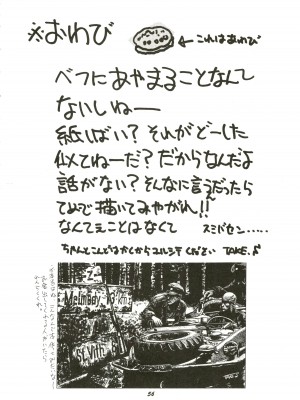 ※おわび
←これはあわび
ベフにあやまることなんて
ないしねー
紙しばい?それがどーした
似てねーだ?だからなんだよ
話がない?そんなに言うだったら
てめーで描いてみやがれ!!
なんてことはなくて スミマセン.....
ちゃんとこんどはかくからユルシテください TAKE.
Malmedy
St. Vith
56